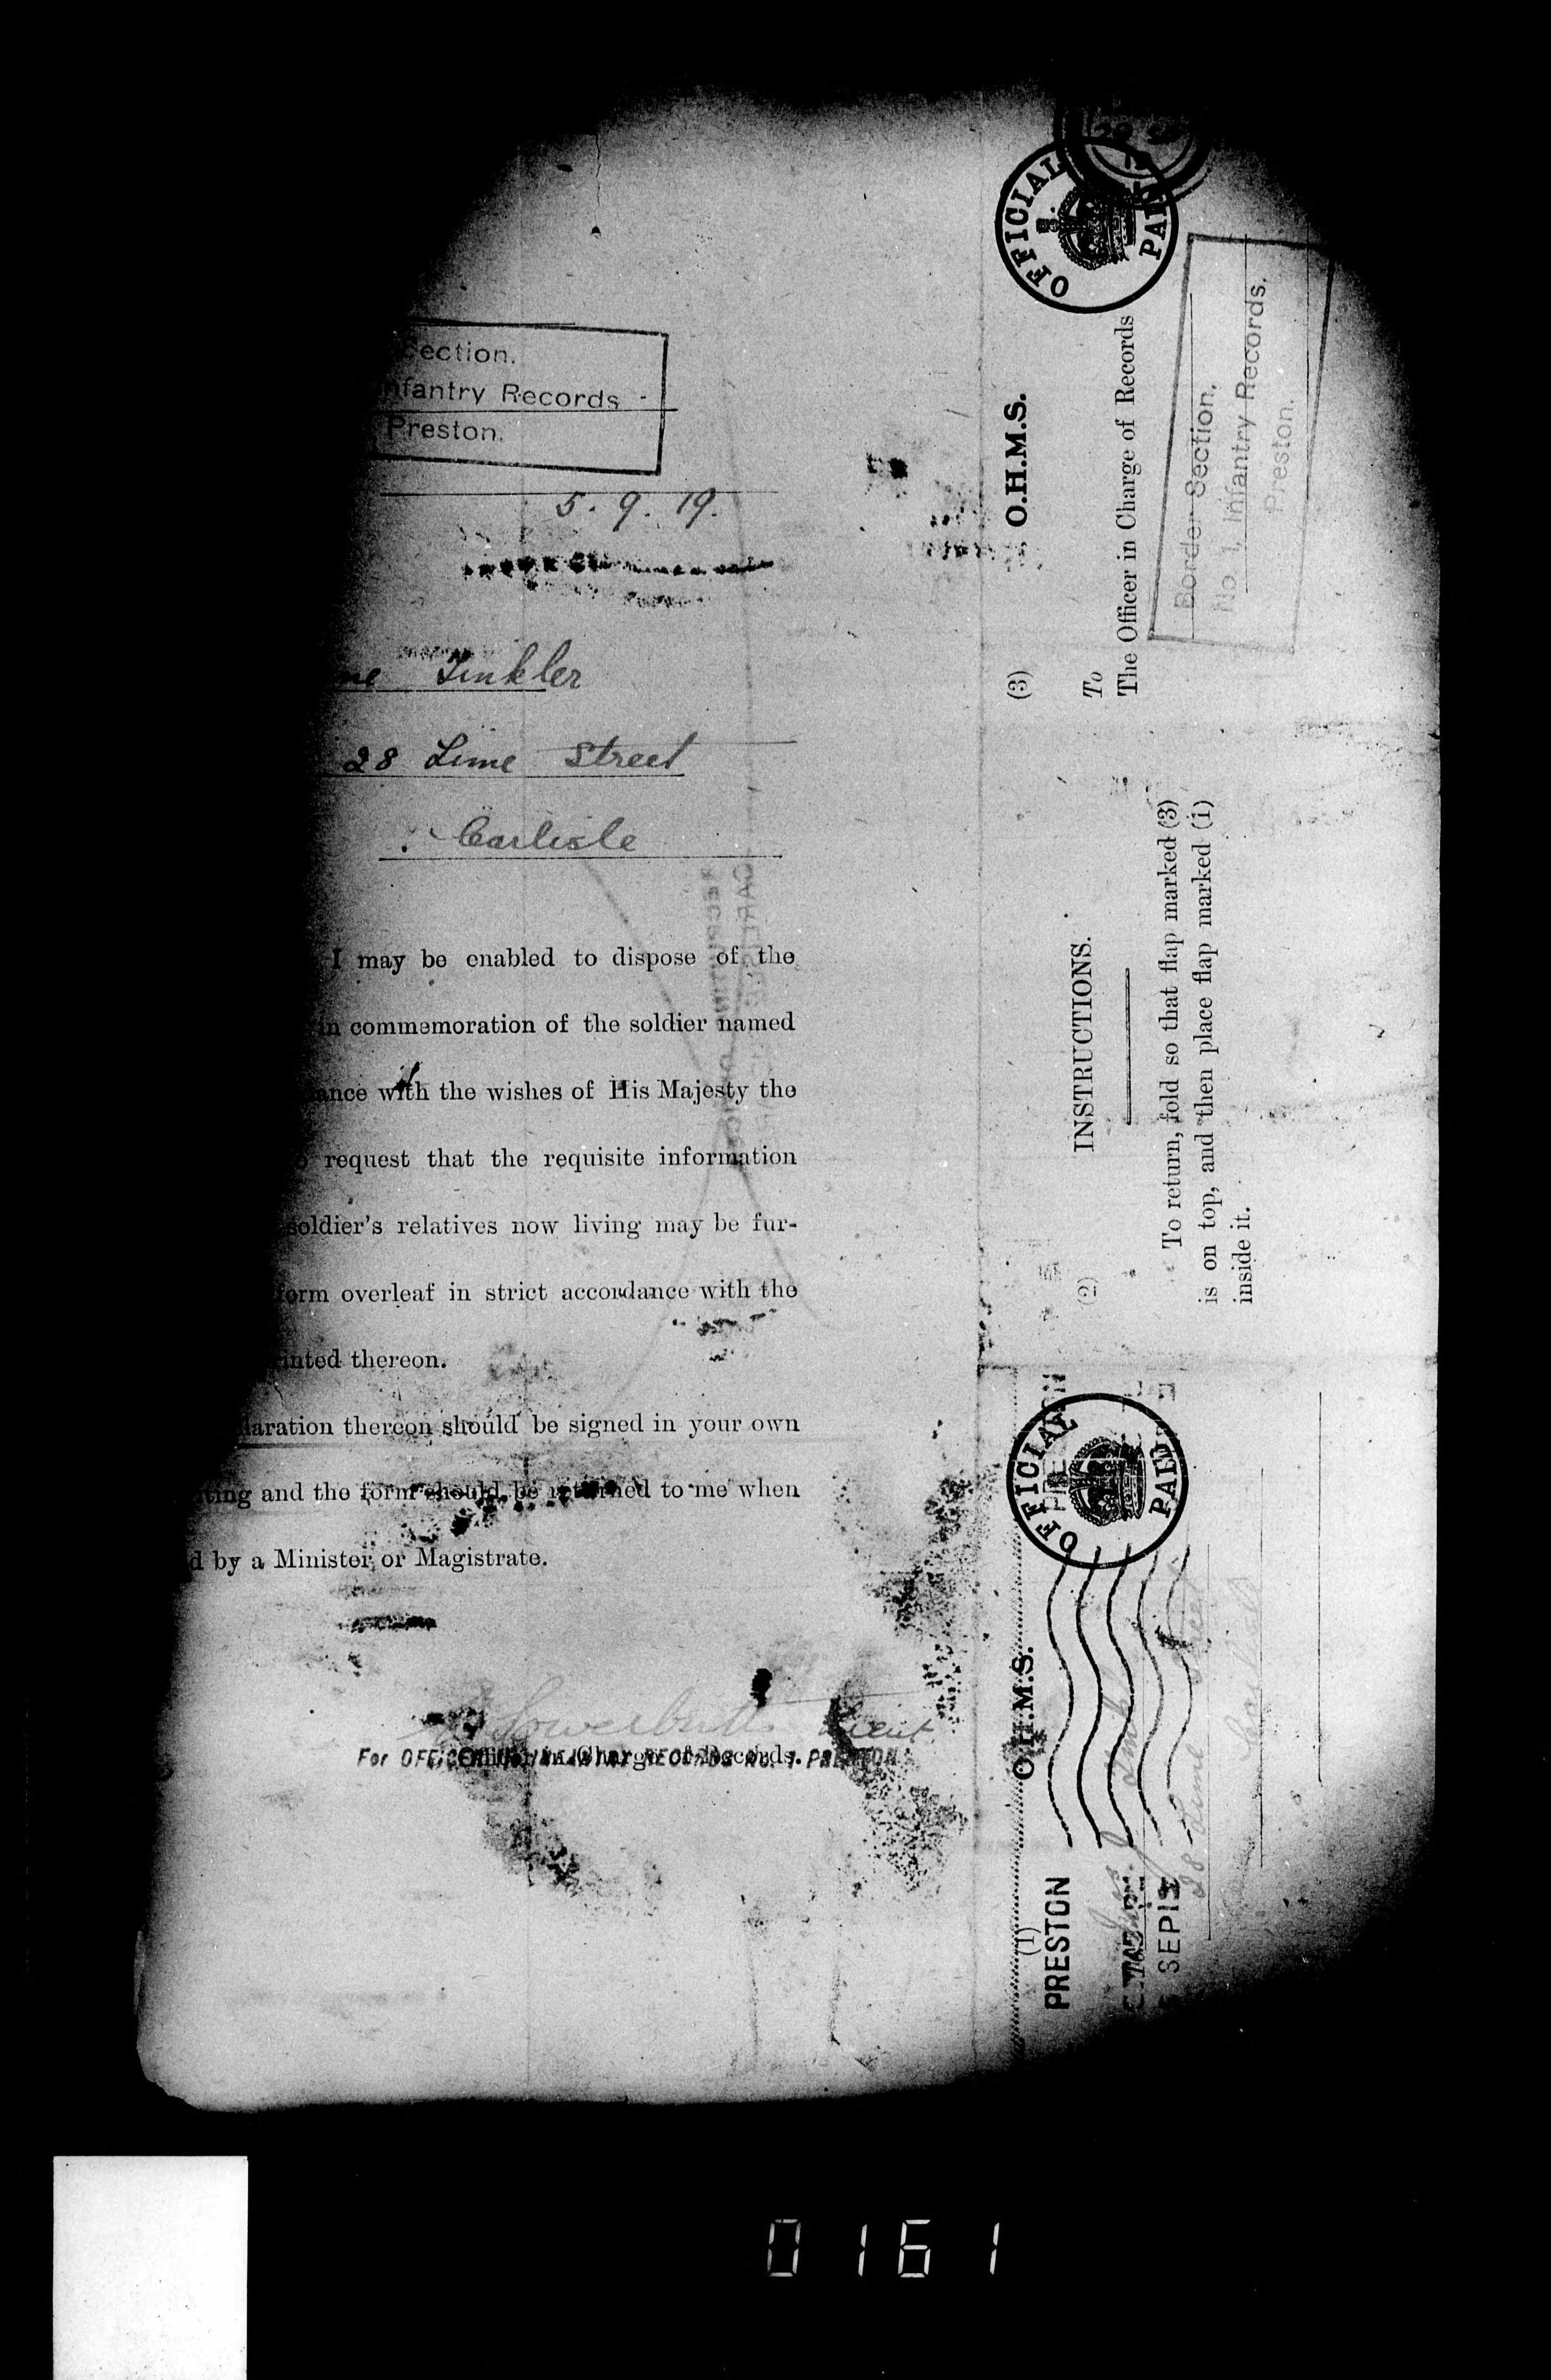 Section.
Infantry Records
Preston.
5. 9. 19.
Tinkler
28 Lime Street
Carlisle
I may be enabled to dispose of the
in commemoration of the soldier named
ance with the wishes of His Majesty the
request that the requisite information
soldier's relatives now living may be fur-
form overleaf in strict accordance with the
inted thereon.
laration thereon should be signed in your own
ting and the form should be returned to me when
d by a Minister or Magistrate.
Lieut
Officer in Charge of Records.
(3) O.H.M.S.
OFFICIAL PAID
To
The Officer in Charge of Records
Border Section,
No 1, Infantry Records.
Preston.
(2) INSTRUCTIONS.
To return, fold so that flap marked (3)
is on top, and then place flap marked (1)
inside it.
(1) O.H.M.S.
OFFICIAL PAID
PRESTON
SEP 19
28 Lime Street
0161